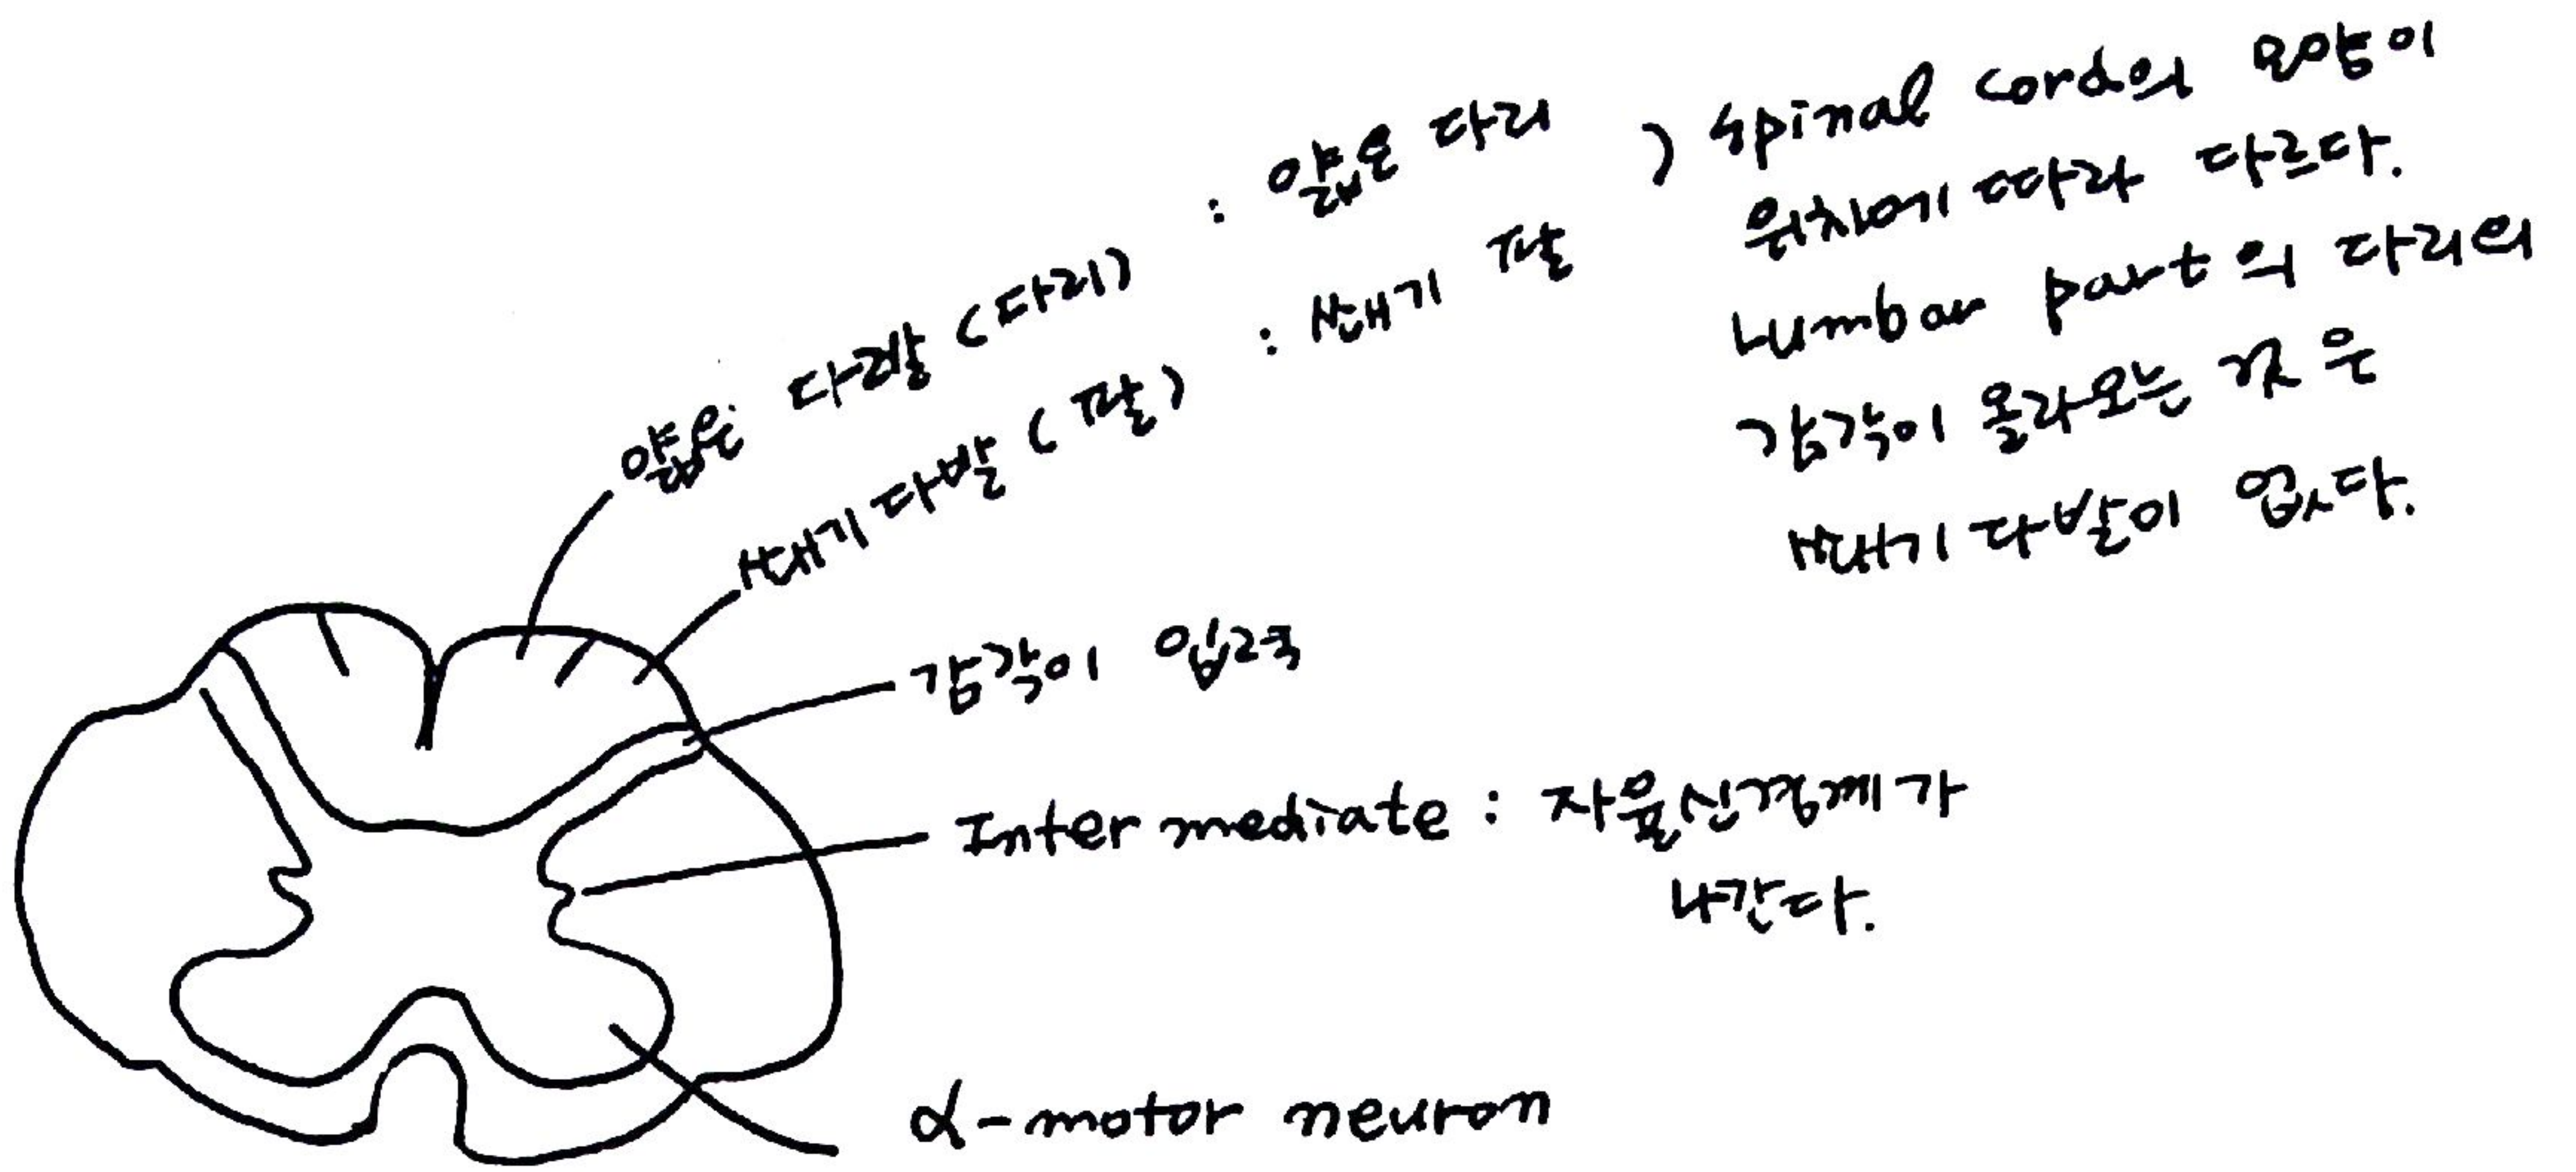 얇은 다발 (다리) : 얇은 다리
쐐기 다발 (팔) : 쐐기 팔
) spinal cord의 모양이
위치에 따라 다르다.
Lumbar part의 다리의
감각이 올라오는 것은
쐐기 다발이 없다.
감각이 입력
Intermediate : 자율신경계가
나간다.
α-motor neuron